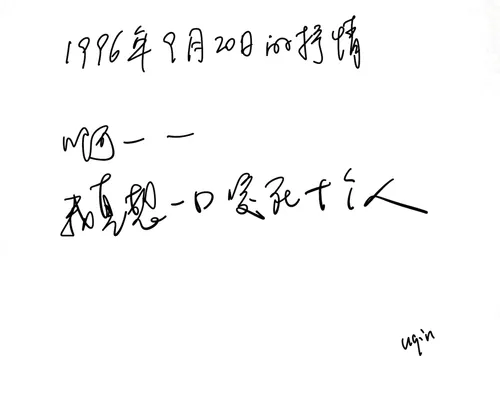 1996年9月20日的抒情
啊一一
我真想一口爱死十个人
uqin